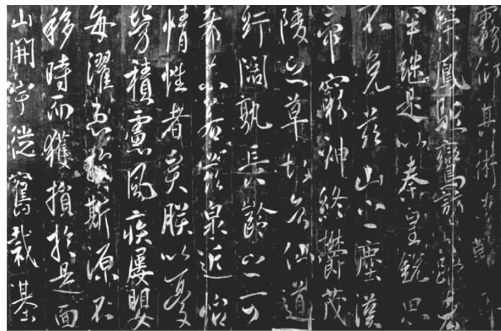 霧仰其術
絆鳳驅鸞
罕繼是以秦皇銳思
不免茲山之塵漢
帝窮神終鬱茂
陵之草故知仙道
紆闊孰長齡之可
希若茲泉近怡
情性者矣朕以憂
勞積慮風疾屢嬰
每濯患於斯源不
移時而獲損於是面
山開宇從舊裁基